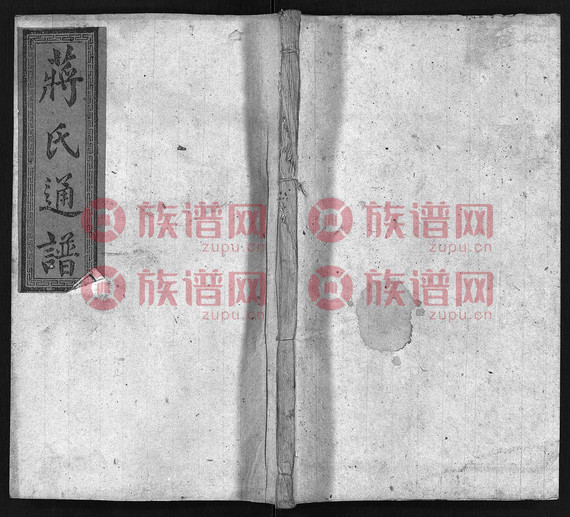 蔣氏通譜
族谱网
zupu.cn
族谱网
zupu.cn
族谱网
zupu.cn
族谱网
zupu.cn